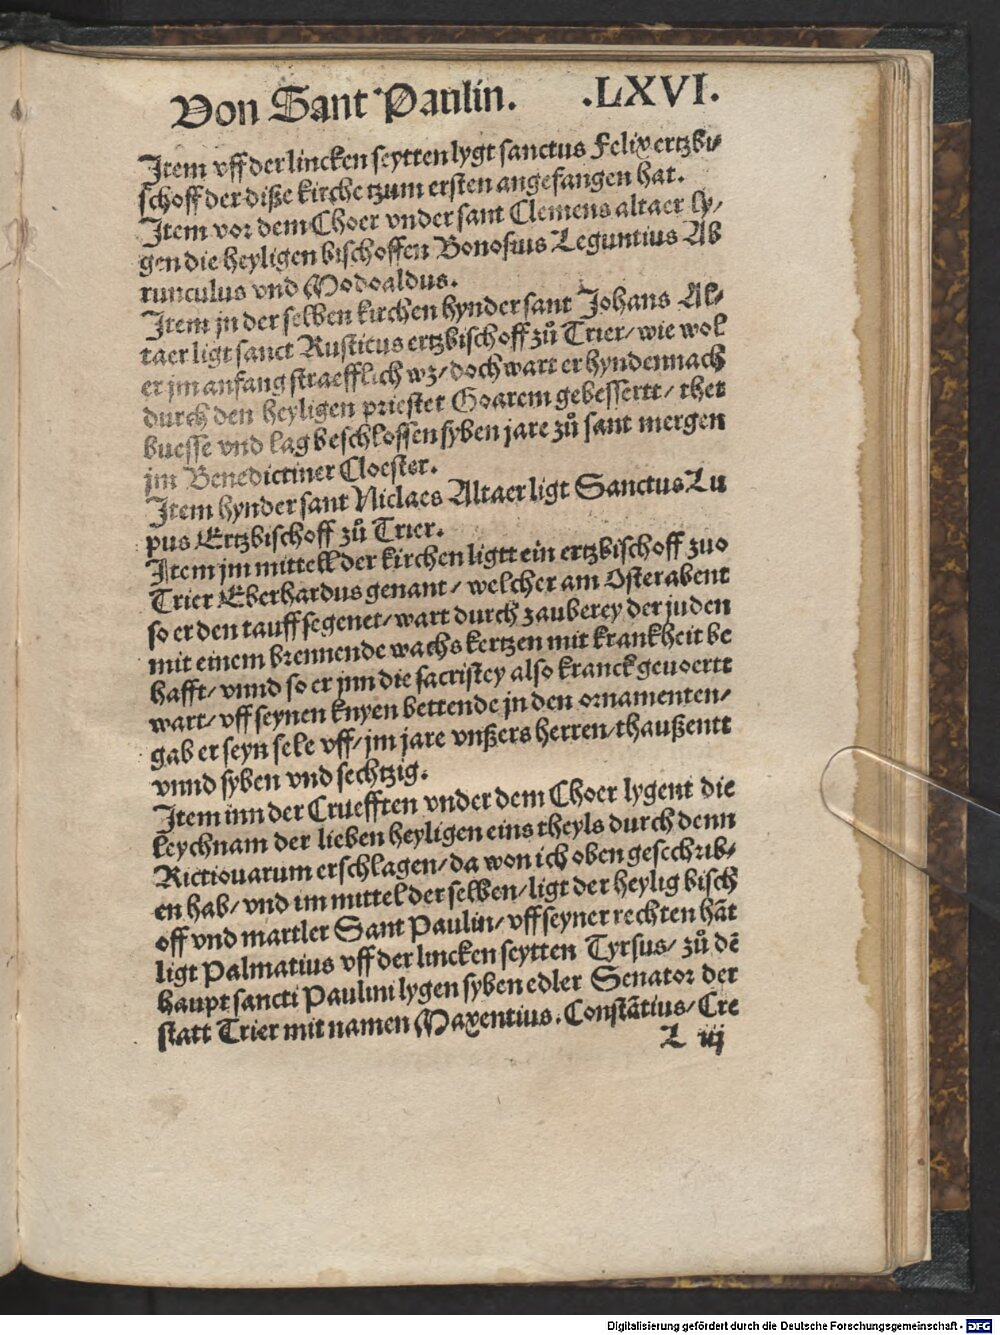 Von Sant Paulin. .LXVI.
Item vff der lincken seytten lygt sanctus Felix ertzbi-
schoff der diße kirche tzum ersten angefangen hat.
Item vor dem Choer vnder sant Clemens altaer ly-
gen die heyligen bischoffen Bonosius Leguntius Ab
runculus vnd Modoaldus.
Item jn der selben kirchen hynder sant Johans Al-
taer ligt sanct Rusticus ertzbischoff zů Trier/ wie wol
er jm anfang straefflich wz/ doch wart er hyndennach
durch den heyligen priester Goarem gebessertt/ thet
buesse vnd lag beschlossen syben jare zů sant mergen
jm Benedictiner Cloester.
Item hynder sant Niclaes Altaer ligt Sanctus Lu
pus Ertzbischoff zů Trier.
Item jm mittell der kirchen ligtt ein ertzbischoff zuo
Trier Eberhardus genant/ welcher am Osterabent
so er den tauff segenet/ wart durch zauberey der juden
mit einem brennende wachs kertzen mit krankheit be
hafft/ vnnd so er jnn die sacristey also kranck geuoertt
wart/ vff seynen knyen bettende jn den ornamenten/
gab er seyn sele vff/ jm jare vnßers herren/ thaußentt
vnnd syben vnd sechtzig.
Item inn der Cruefften vnder dem Choer lygent die
leychnam der lieben heyligen eins theyls durch denn
Rictiouarum erschlagen/ da won ich oben gesechrib-
en hab/ vnd im mittel der selben/ ligt der heylig bisch
off vnd martler Sant Paulin/ vff seyner rechten hāt
ligt Palmatius vff der lincken seytten Tyrsus/ zů dē
haupt sancti Paulini lygen syben edler Senator der
statt Trier mit namen Maxentius. Constātius/ Cre
L iij
Digitalisierung gefördert durch die Deutsche Forschungsgemeinschaft - DFG